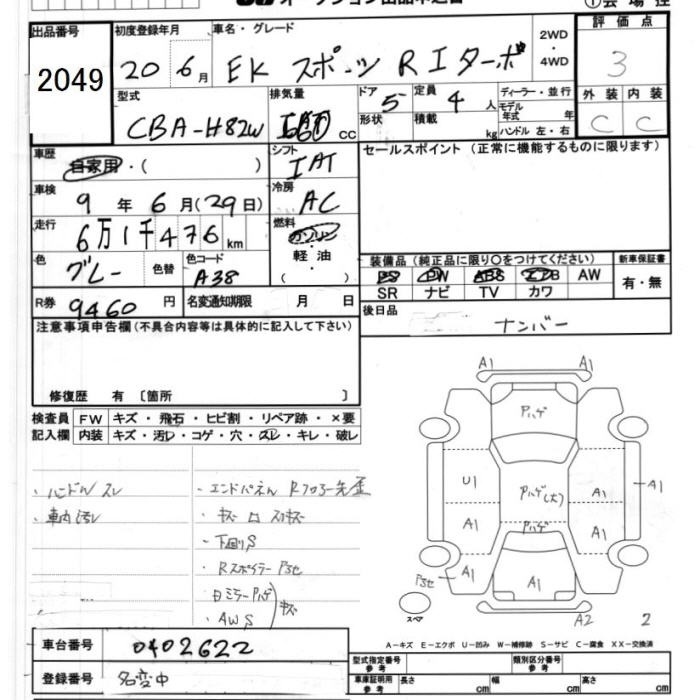 ①会場控
出品番号 初度登録年月 車名・グレード 2WD・4WD 評価点
2049 20 6月 EK スポーツ Rエターボ 3
型式 排気量 ドア 5 定員 4人 ディーラー・並行 外装 内装
CBA-H82W 660 cc 形状 積載 kg モデル年式 年 C C
ハンドル 左・右
車歴 自家用・( ) シフト IAT セールスポイント (正常に機能するものに限ります)
車検 9年 6月(29日) 冷房 AC
走行 6万1千476km 燃料 ガソリン・軽油・( )
色 グレー 色替 色コード A38 装備品 (純正品に限り○をつけてください) 新車保証書
PS PW ABS エアB AW 有・無
SR ナビ TV カワ
R券 9460円 名変通知期限 月 日 後日品 ナンバー
注意事項申告欄(不具合内容等は具体的に記入して下さい)
修復歴 有 〔箇所 〕
検査員 FW キズ・飛石・ヒビ割・リペア跡・×要
記入欄 内装 キズ・汚レ・コゲ・穴・スレ・キレ・破レ
・ハンドルスレ ・エンドパネル Rフロアー先歪
・車内汚レ
・下回りS
・Rスポイラー
・AWS キズ
A1 A1
Pハゲ
U1 Pハゲ(大) A1 A1
A1 Pハゲ A1
A1 A1
スペア A2 2
A-キズ E-エクボ U-凹み W-補修跡 S-サビ C-腐食 XX-交換済
車台番号 0402622 型式指定番号 参考 類別区分番号 参考
登録番号 名変中 車庫証明用 参考 長さ cm 幅 cm 高さ cm